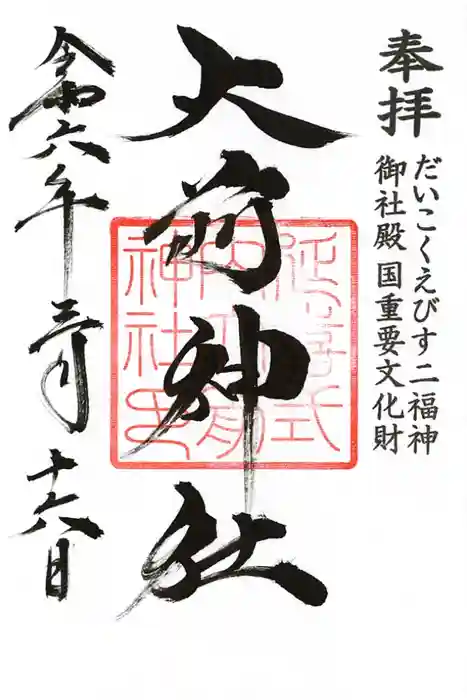 奉拝
だいこくえびす二福神
御社殿国重要文化財
大前神社
延喜式
内大前
神社印
令和六年三月十六日